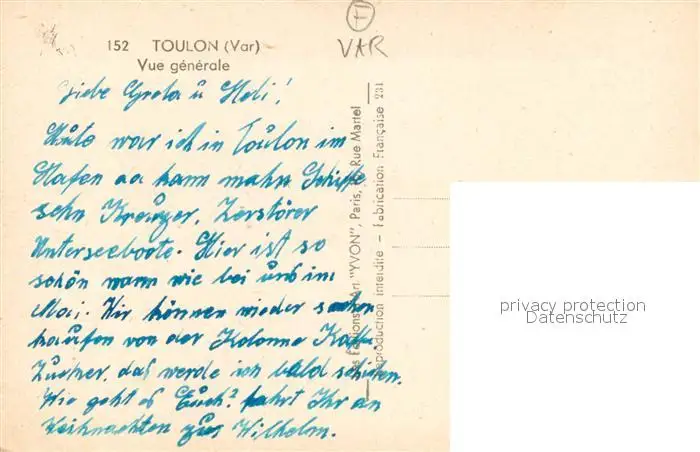 F
VAR
152 TOULON (Var)
Vue générale
Liebe Greta u Hedi!
Heute war ich in Toulon im
Hafen da kann mahn Schiffe
sehn Kreuzer, Zerstörer
Unterseeboote. Hier ist so
schön warm wie bei uns im
Mai. Wir können wieder sachen
kaufen von der Kolonne Kaffe
Zucker, das werde ich bald schiken.
Wie geht es Euch? fahrt Ihr an
Weihnachten zu Wilhelm.
Les Editions d'Art "YVON", Paris, Rue Martel
Reproduction interdite — Fabrication Française 231
privacy protection
Datenschutz